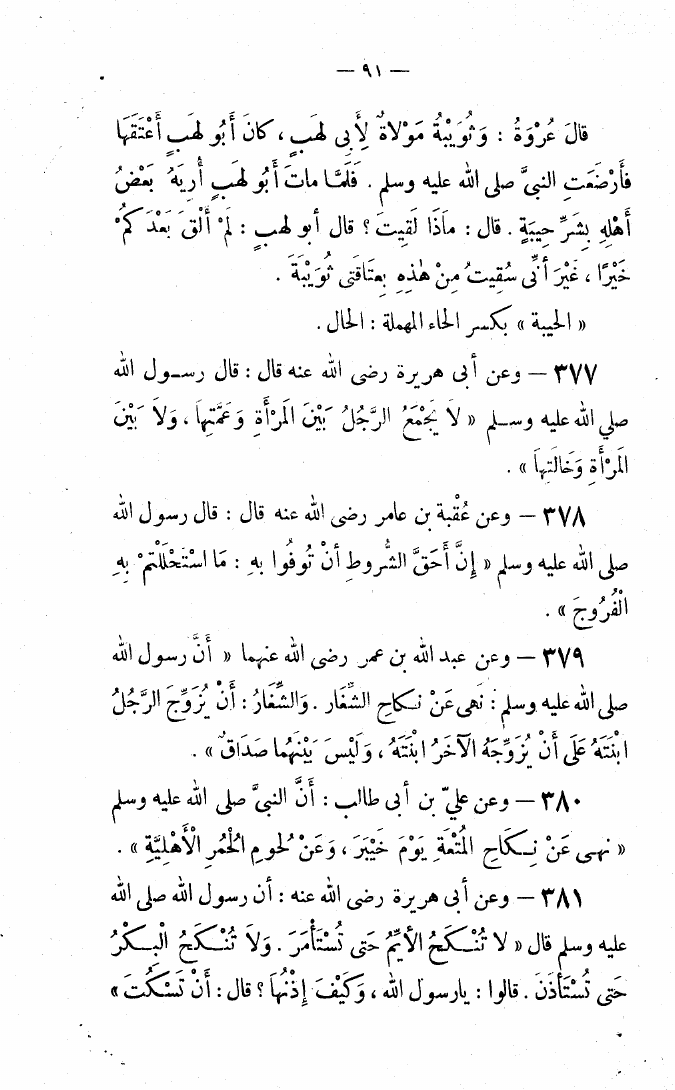 — ٩١ —
قالَ عُرْوَةُ : وَثُوَيْبَةُ مَوْلاَةٌ لِأَبِى لهَبٍ ، كانَ أَبُو لهَبٍ أَعْتَقَهَا
فَأَرْضَعَتِ النبيَّ صلى الله عليه وسلم . فَلَمَّا ماتَ أَبُو لهَبٍ أُرِيَهُ بَعْضُ
أَهْلِهِ بِشَرِّ حِيبَةٍ . قال : مَاذَا لَقِيتَ ؟ قال أبو لهبٍ : لَمْ أَلْقَ بَعْدَكُمْ
خَيْرًا ، غَيْرَ أَنِّى سُقِيتُ مِنْ هٰذِهِ بِعَتَاقَتِى ثُوَيْبَةَ .
« الحيبة » بكسر الحاء المهملة : الحال .
٣٧٧ — وعن أبى هريرة رضى الله عنه قال : قال رسول الله
صلي الله عليه وسلم « لاَ يَجْمَعُ الرَّجُلُ بَيْنَ المَرْأَةِ وَعَمَّتِهَا ، وَلاَ بَيْنَ
المَرْأَةِ وَخَالَتِهَا » .
٣٧٨ — وعن عُقْبة بن عامر رضى الله عنه قال : قال رسول الله
صلى الله عليه وسلم « إِنَّ أَحَقَّ الشُّرُوطِ أَنْ تُوفُوا بهِ : مَا اسْتَحْلَلْتُمْ بِهِ
الْفُرُوجَ » .
٣٧٩ — وعن عبد الله بن عمر رضى الله عنهما « أَنَّ رسول الله
صلى الله عليه وسلم : نَهَى عَنْ نكاحِ الشِّغَار . وَالشِّغَارُ : أَنْ يُزَوِّجَ الرَّجُلُ
ابْنَتَهُ عَلَى أَنْ يُزَوِّجَهُ الآخَرُ ابْنَتَهُ ، وَلَيْسَ بَيْنَهُمَا صَدَاقٌ » .
٣٨٠ — وعن عليّ بن أبى طالب : أَنَّ النبيَّ صلى الله عليه وسلم
« نهـى عَنْ نِكَاحِ المُتْعَةِ يَوْمَ خَيْبَرَ ، وَعَنْ لُحومِ الْحُمُرِ الْأَهْلِيَّةِ » .
٣٨١ — وعن أبى هريرة رضى الله عنه : أن رسول الله صلى الله
عليه وسلم قال « لا تُنْكَحُ الأَيِّمُ حَتى تُسْتَأْمَرَ . وَلاَ تُنْكَحُ الْبِكْرُ
حَتى تُسْتَأْذَنَ . قالوا : يارسول الله ، وَكَيْفَ إِذْنُهَا ؟ قال : أَنْ تَسْكُتَ »